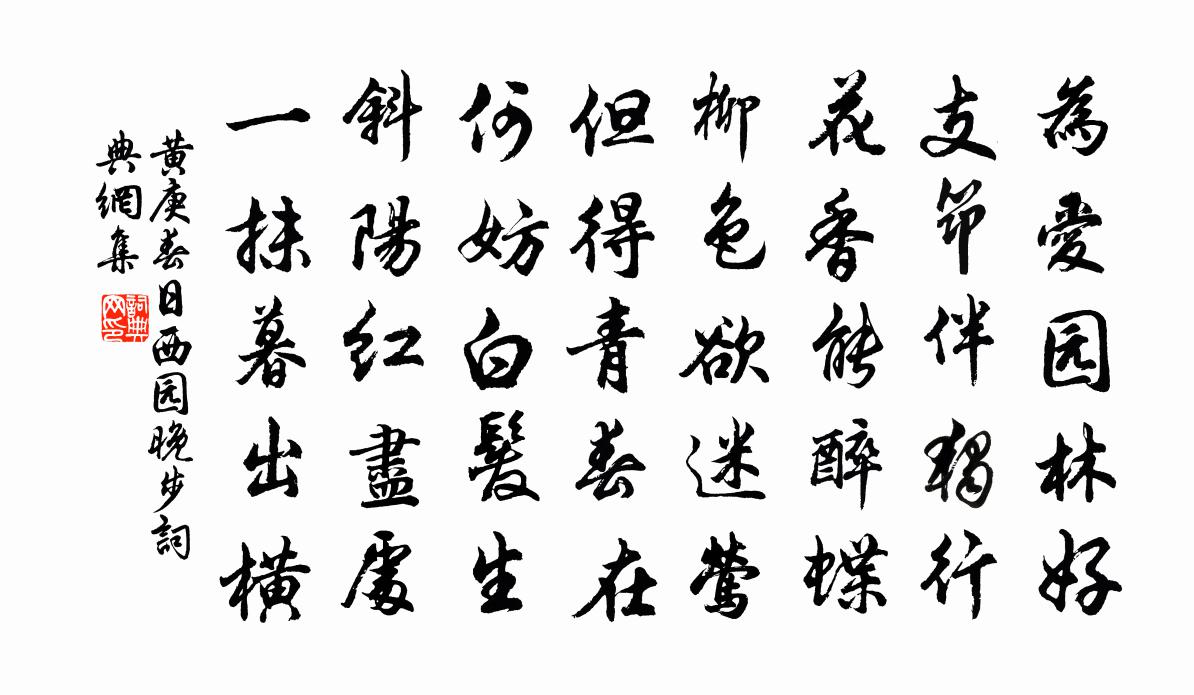 為愛园林好
支筇伴獨行
花香能醉蝶
柳色欲迷莺
但得青春在
何妨白髮生
斜陽红盡處
一抹暮出橫
黄庚春日西园晚步詞
典網集
詞典
网印